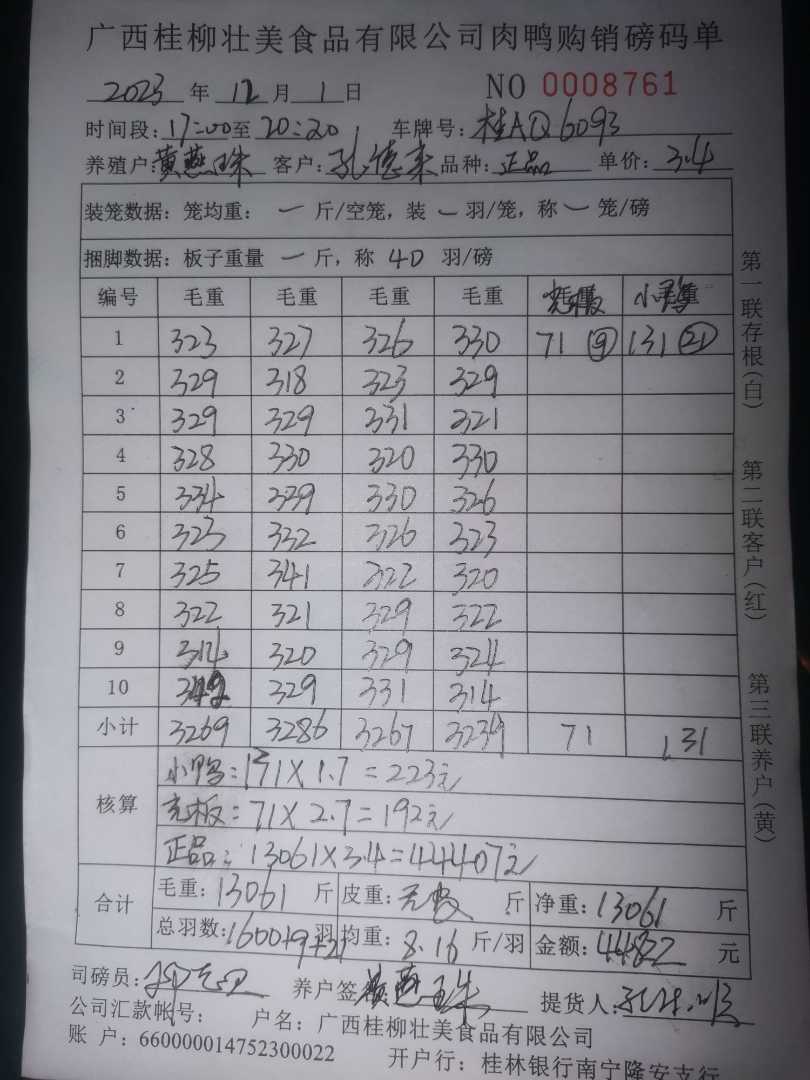 广西桂柳壮美食品有限公司肉鸭购销磅码单
2023 年 12 月 1 日 NO 0008761
时间段: 17:00至 20:20 车牌号: 桂AQ6093
养殖户: 黄燕珠 客户: 孔德来 品种: 正品 单价: 3.4
装笼数据: 笼均重: 一 斤/空笼, 装 一 羽/笼, 称 一 笼/磅
捆脚数据: 板子重量 一 斤, 称 40 羽/磅
编号 毛重 毛重 毛重 毛重 小鸭
1 323 327 326 330 71 ⑨ 131 ㉑
2 329 318 323 329
3 329 329 331 321
4 328 330 320 330
5 334 339 330 326
6 323 332 326 323
7 325 341 322 320
8 322 321 329 322
9 314 320 329 324
10 342 329 331 314
小计 3269 3286 3267 3239 71 131
核算 小鸭: 131×1.7=223元
板: 71×2.7=192元
正品: 13061×3.4=44407元
合计 毛重: 13061 斤 皮重: 斤 净重: 13061 斤
总羽数: 1600+9+21 羽 均重: 8.16 斤/羽 金额: 44822 元
司磅员: 养户签 黄燕珠 提货人:
公司汇款帐号: 户名: 广西桂柳壮美食品有限公司
账 户: 660000014752300022 开户行: 桂林银行南宁隆安支行
第一联存根(白) 第二联客户(红) 第三联养户(黄)